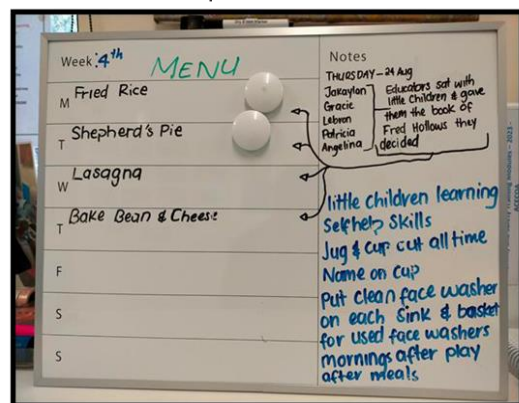 Week: 4th
MENU
M Fried Rice
T Shepherd's Pie
W Lasagna
T Bake Bean & Cheese
F
S
S
Notes
THURSDAY - 24 Aug
Jakaylon
Gracie
Lebron
Patricia
Angelina
Educators sat with
little Children & gave
them the book of
Fred Hollows they
decided
little children learning
Selfhelp Skills
Jug & cup out all time
Name on cup
Put clean face washer
on each sink & basket
for used face washers
mornings after play
after meals